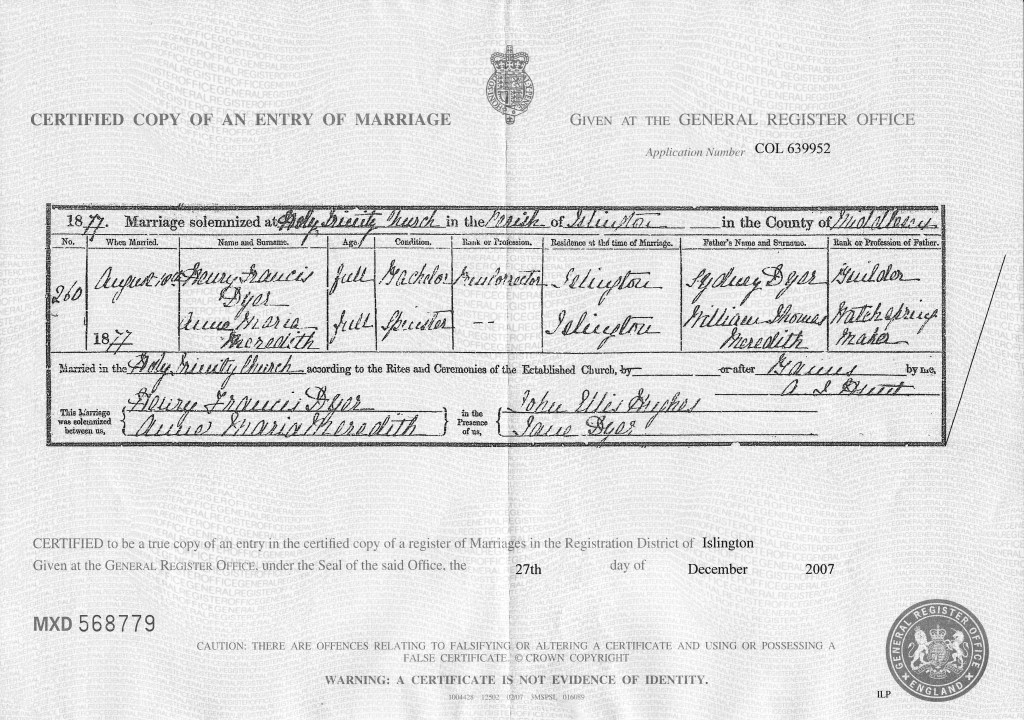 CERTIFIED COPY OF AN ENTRY OF MARRIAGE
GIVEN AT THE GENERAL REGISTER OFFICE
Application Number COL 639952
1877. Marriage solemnized at Holy Trinity Church in the Parish of Islington in the County of Middlesex
No. When Married. Name and Surname. Age Condition. Rank or Profession. Residence at the time of Marriage. Father's Name and Surname. Rank or Profession of Father.
260 August 10th Henry Francis Dyer full Bachelor Islington Sydney Dyer Builder
1877 Anne Maria Meredith full Spinster -- Islington William Thomas Meredith Watchspring Maker
Married in the Holy Trinity Church according to the Rites and Ceremonies of the Established Church, by or after Banns by me,
A J Hunt
This Marriage was solemnized between us, Henry Francis Dyer
Anne Maria Meredith
in the Presence of us, John Ellis Hughes
Jane Dyer
CERTIFIED to be a true copy of an entry in the certified copy of a register of Marriages in the Registration District of Islington
Given at the GENERAL REGISTER OFFICE, under the Seal of the said Office, the 27th day of December 2007
MXD 568779
CAUTION: THERE ARE OFFENCES RELATING TO FALSIFYING OR ALTERING A CERTIFICATE AND USING OR POSSESSING A
FALSE CERTIFICATE. © CROWN COPYRIGHT
WARNING: A CERTIFICATE IS NOT EVIDENCE OF IDENTITY.
GENERAL REGISTER OFFICE
ENGLAND
ILP